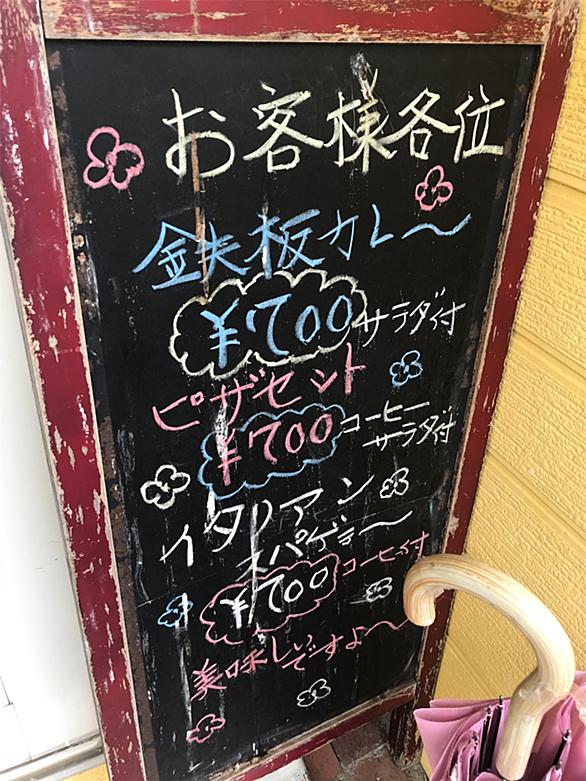 お客様各位
鉄板カレ〜
¥700 サラダ付
ピザセット
¥700 コーヒー
サラダ付
イタリアン
スパゲティ〜
¥700 コーヒー付
美味しいですよ〜